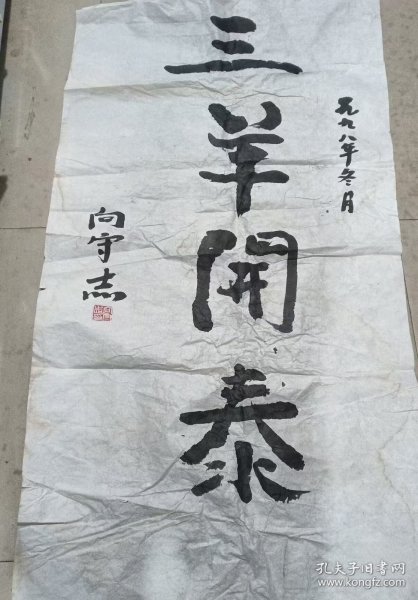 一九九八年冬月
三羊開泰
向守志
孔夫子旧书网
www.kongfz.com